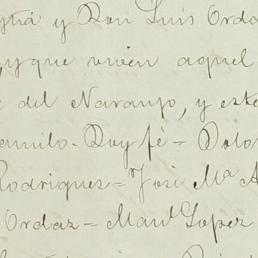 y Don Luis Orda
y que viven aquel
del Naranjo, y este
amilo. Doy fé = Dolo
Rodriguez = José Mª A
Ordaz = Manl Lopez